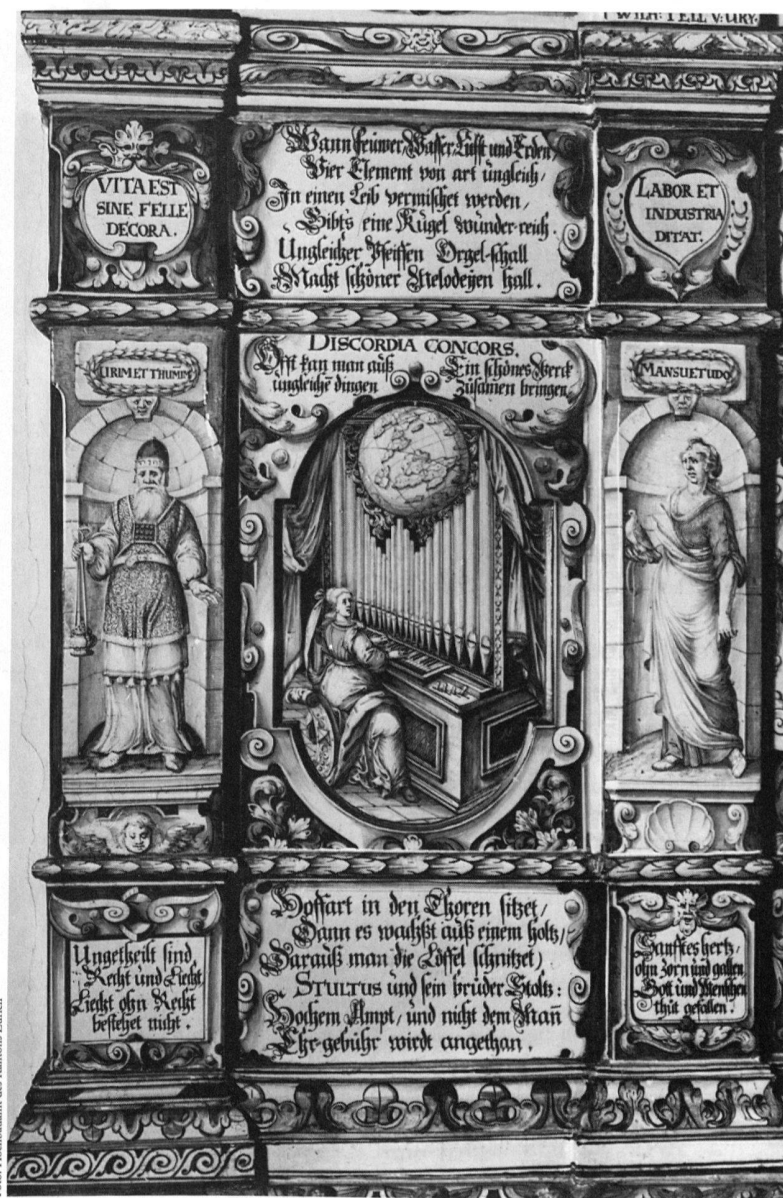 WILH: TELL V: URY.
VITA EST
SINE FELLE
DECORA.
Wann feüwer, Wasser, Lufft und Erden,
Vier Element von art ungleich,
In einen Leib vermischet werden,
Gibt's eine Kugel wunder-reich.
Ungleicher Pfeiffen Orgel-schall
Macht schöner Melodeyen hall.
LABOR ET
INDUSTRIA
DITAT.
URIM ET THUMIM
DISCORDIA CONCORS.
Offt kan man auß
ungleichē dingen
Ein schönes Werck
zusamen bringen
MANSUETUDO
Ungetheilt sind
Recht und Liecht,
Liecht ohn Recht
bestehet nicht.
Hoffart in den Thoren sitzet/
Dann es wachßt auß einem holtz/
Darauß man die Löffel schnitzet/
STULTUS und sein bruder Stoltz:
Hochem Ampt/ und nicht dem Mañ
Ehr-gebühr wirdt angethan.
Sanfftes hertz/
ohn zorn und gallen
Gott und Menschen
thut gefallen.